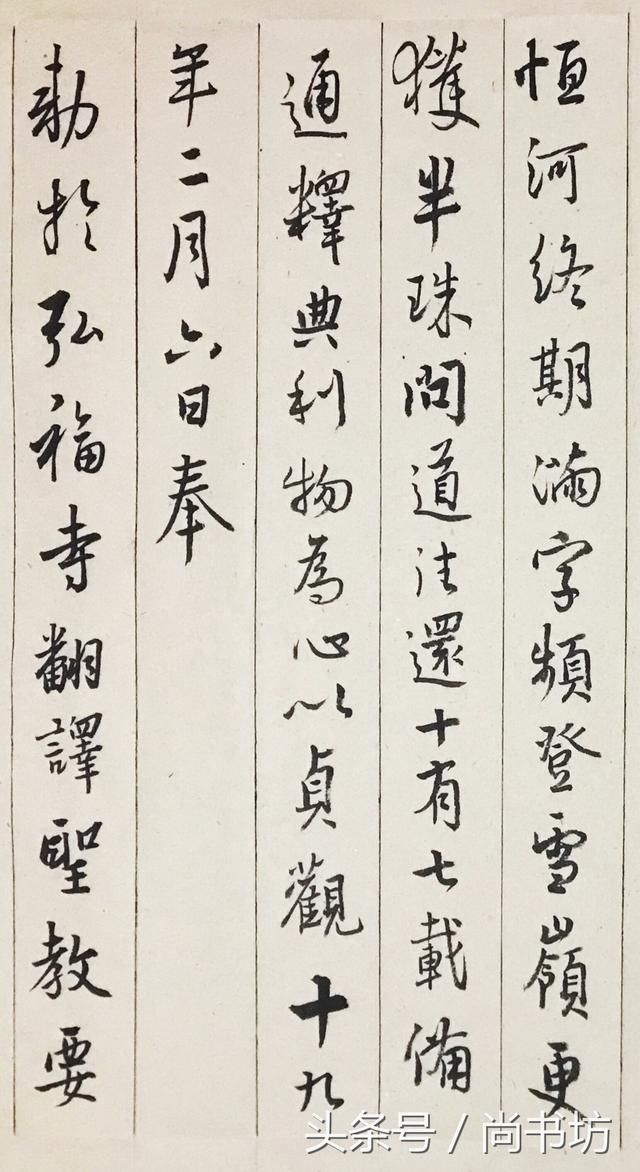 恒河終期滿字頻登雪嶺更
獲半珠問道法還十有七載備
通釋典利物為心以貞觀十九
年二月六日奉
勅於弘福寺翻譯聖教要
头条号 / 尚书坊